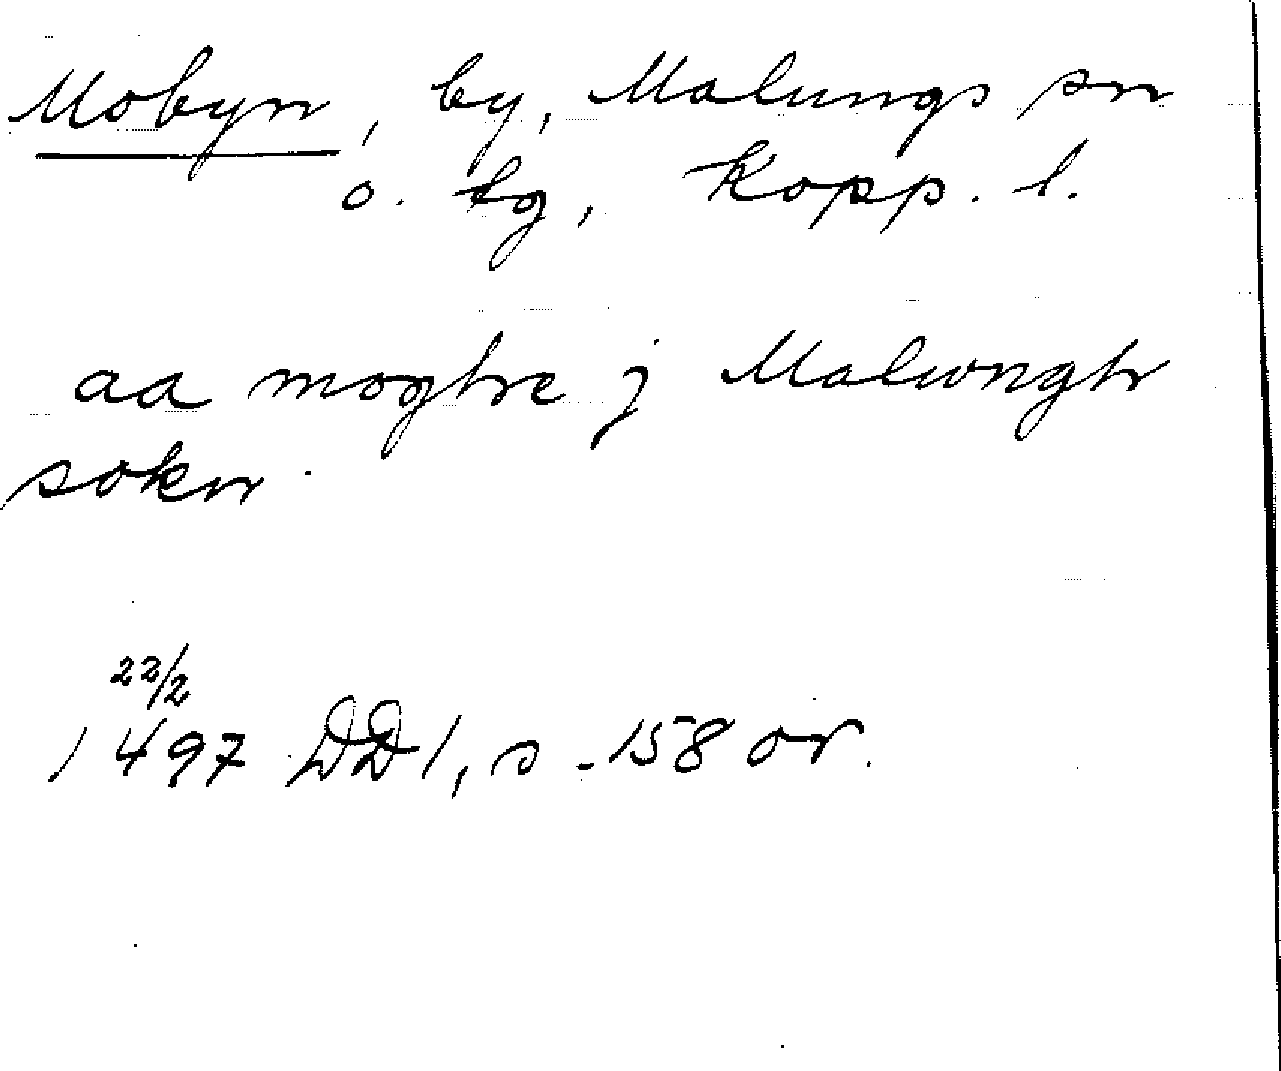 Mobyn, by, Malungs sn
o. tg, Kopp. l.
aa moghe j Malwngh
sokn
22/2
1497 DD 1, s. 158 or.